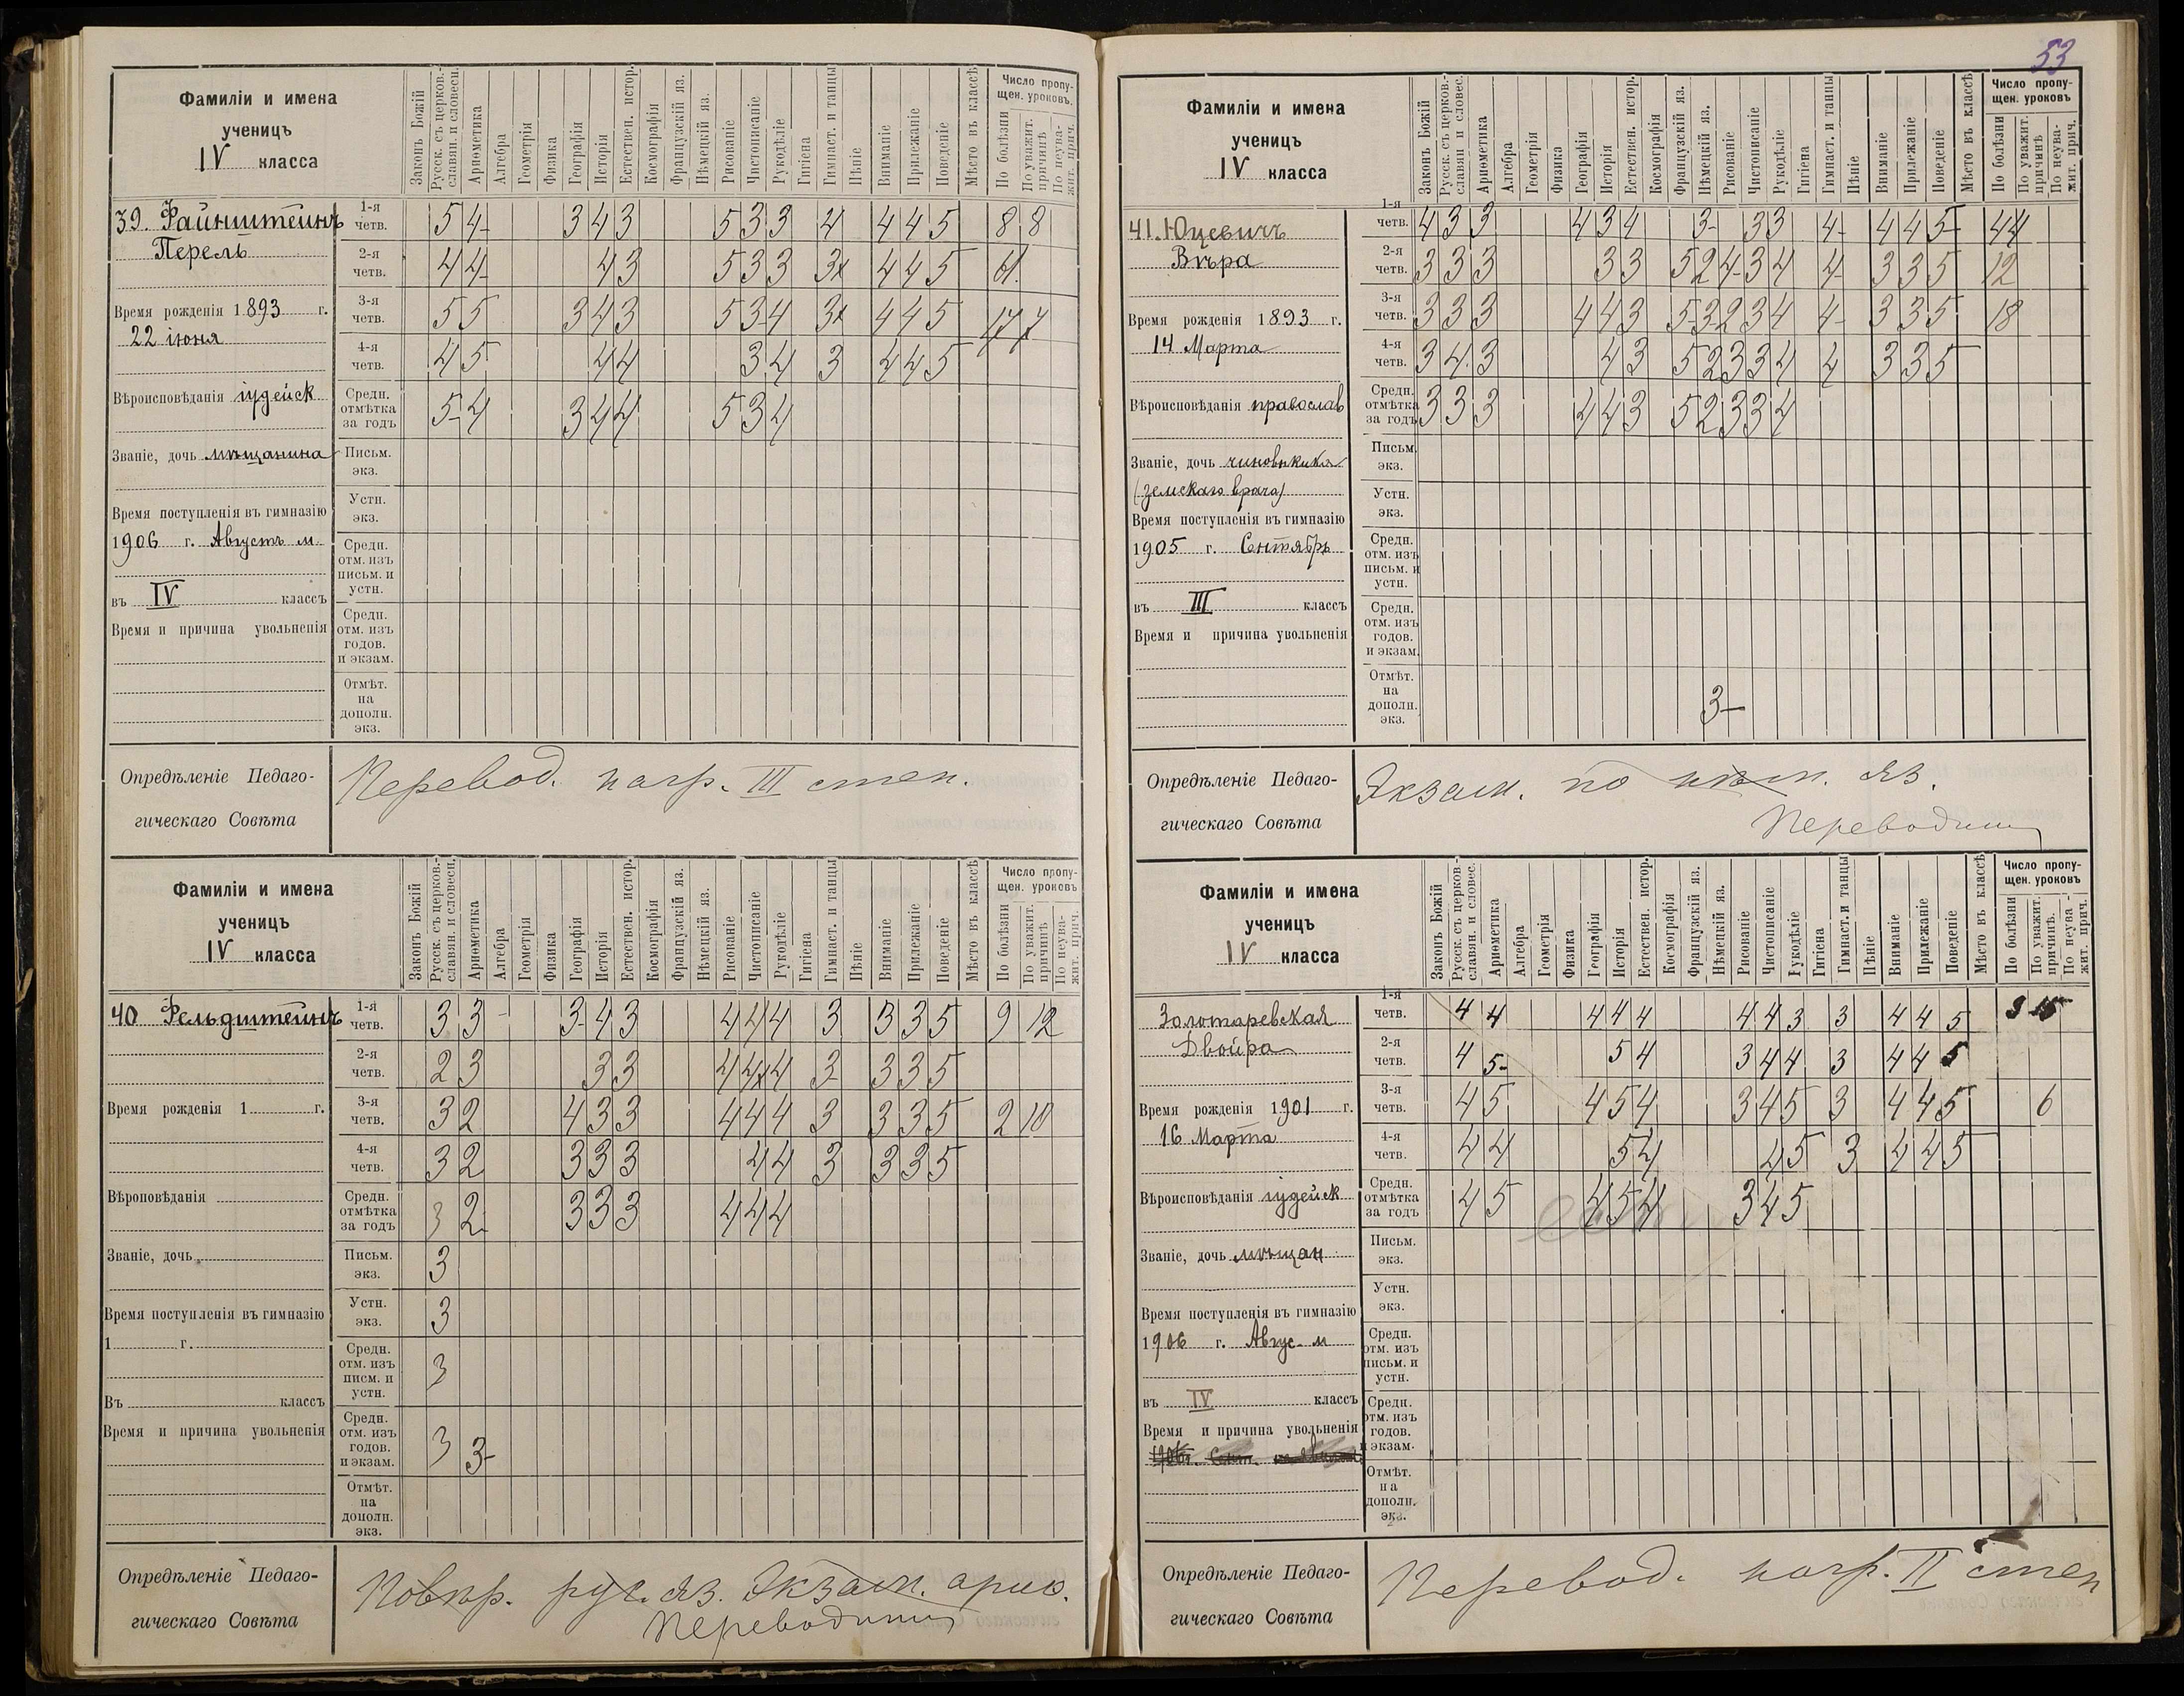 Фамиліи и имена
ученицъ
IV класса
Законъ Божій
Русск. съ церков.-славян. и словесн.
Ариѳметика
Алгебра
Геометрія
Физика
Географія
Исторія
Естествен. истор.
Космографія
Французскій яз.
Нѣмецкій яз.
Рисованіе
Чистописаніе
Рукодѣліе
Гигіена
Гимнаст. и танцы
Пѣніе
Вниманіе
Прилежаніе
Поведеніе
Мѣсто въ классѣ
Число пропущен. уроковъ.
По болѣзни
По уважит. причинѣ
По неуважит. прич.
39. Файнштейнъ
Перель
Время рожденія 1893 г.
22 іюня
Вѣроисповѣданія іудейск
Званіе, дочь мѣщанина
Время поступленія въ гимназію
1906 г. Августъ м.
въ IV классъ
Время и причина увольненія
1-я четв. 5 4 3 4 3 5 3 3 4 4 4 5 8 8
2-я четв. 4 4 4 3 5 3 3 3 4 4 5
3-я четв. 5 5 3 4 3 5 3 4 3 4 4 5
4-я четв. 4 5 4 4 3 4 3 4 4 5
Средн. отмѣтка за годъ 5 4 3 4 4 5 3 4
Письм. экз.
Устн. экз.
Средн. отм. изъ письм. и устн.
Средн. отм. изъ годов. и экзам.
Отмѣт. на дополн. экз.
Опредѣленіе Педаго-
гическаго Совѣта
Перевод. нагр. III степ.
Фамиліи и имена
ученицъ
IV класса
Законъ Божій
Русск. съ церков.-славян. и словесн.
Ариѳметика
Алгебра
Геометрія
Физика
Географія
Исторія
Естествен. истор.
Космографія
Французскій яз.
Нѣмецкій яз.
Рисованіе
Чистописаніе
Рукодѣліе
Гигіена
Гимнаст. и танцы
Пѣніе
Вниманіе
Прилежаніе
Поведеніе
Мѣсто въ классѣ
Число пропущен. уроковъ
По болѣзни
По уважит. причинѣ
По неуважит. прич.
40 Фельдштейнъ
Время рожденія 1 г.
Вѣроповѣданія
Званіе, дочь
Время поступленія въ гимназію
1 г.
Въ классъ
Время и причина увольненія
1-я четв. 3 3 3 4 3 4 4 4 3 3 3 5 9 12
2-я четв. 2 3 3 3 4 4 4 3 3 3 5
3-я четв. 3 2 4 3 3 4 4 4 3 3 3 5 2 10
4-я четв. 3 2 3 3 3 4 4 3 3 3 5
Средн. отмѣтка за годъ 3 2 3 3 3 4 4 4
Письм. экз. 3
Устн. экз. 3
Средн. отм. изъ писм. и устн. 3
Средн. отм. изъ годов. и экзам. 3 3-
Отмѣт. на дополн. экз.
Опредѣленіе Педаго-
гическаго Совѣта
Повѣр. рус. яз. Экзам. ариѳ.
Переводит
53
Фамиліи и имена
ученицъ
IV класса
Законъ Божій
Русск. съ церков.-славян и словес.
Ариѳметика
Алгебра
Геометрія
Физика
Географія
Исторія
Естествен. истор.
Космографія
Французскій яз.
Нѣмецкій яз.
Рисованіе
Чистописаніе
Рукодѣліе
Гигіена
Гимнаст. и танцы
Пѣніе
Вниманіе
Прилежаніе
Поведеніе
Мѣсто въ классѣ
Число пропущен. уроковъ
По болѣзни
По уважит. причинѣ
По неуважит. прич.
41. Юцевичъ
Вѣра
Время рожденія 1893 г.
14 Марта
Вѣроисповѣданія православ
Званіе, дочь чиновника
(земскаго врача)
Время поступленія въ гимназію
1905 г. Сентябрь
въ III классъ
Время и причина увольненія
1-я четв. 4 3 3 4 3 4 3- 3 3 4- 4 4 5 44
2-я четв. 3 3 3 3 3 5 2 4 3 4 4 3 3 5 12
3-я четв. 3 3 3 4 4 3 5 3 2 3 4 4 3 3 5 18
4-я четв. 3 4 3 4 3 5 2 3 3 4 4 3 3 5
Средн. отмѣтка за годъ 3 3 3 4 4 3 5 2 3 3 4
Письм. экз.
Устн. экз.
Средн. отм. изъ письм. и устн.
Средн. отм. изъ годов. и экзам.
Отмѣт. на дополн. экз. 3-
Опредѣленіе Педаго-
гическаго Совѣта
Экзам. по нѣм. яз.
Переводит
Фамиліи и имена
ученицъ
IV класса
Законъ Божій
Русск. съ церков.-славян. и словес.
Ариѳметика
Алгебра
Геометрія
Физика
Географія
Исторія
Естествен. истор.
Космографія
Французскій яз.
Нѣмецкій яз.
Рисованіе
Чистописаніе
Рукодѣліе
Гигіена
Гимнаст. и танцы
Пѣніе
Вниманіе
Прилежаніе
Поведеніе
Мѣсто въ классѣ
Число пропущен. уроковъ
По болѣзни
По уважит. причинѣ.
По неуважит. прич.
Золотаревская
Двойра
Время рожденія 1901 г.
16 Марта
Вѣроисповѣданія іудейск
Званіе, дочь мѣщан
Время поступленія въ гимназію
1906 г. Авгус. м
въ IV классъ
Время и причина увольненія
1-я четв. 4 4 4 4 4 4 4 3 3 4 4 5
2-я четв. 4 5- 5 4 3 4 4 3 4 4 5
3-я четв. 4 5 4 5 4 3 4 5 3 4 4 5 6
4-я четв. 4 4 5 4 4 5 3 4 4 5
Средн. отмѣтка за годъ 4 5 4 5 4 3 4 5
Письм. экз.
Устн. экз.
Средн. отм. изъ письм. и устн.
Средн. отм. изъ годов. и экзам.
Отмѣт. на дополн. экз.
Опредѣленіе Педаго-
гическаго Совѣта
Перевод. нагр. II степ